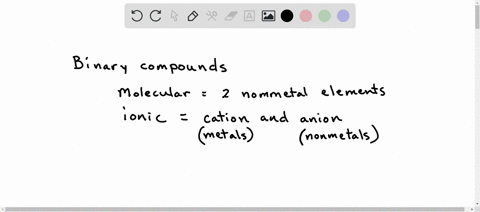 Binary compounds
Molecular = 2 nonmetal elements
ionic = cation and anion
(metals) (nonmetals)